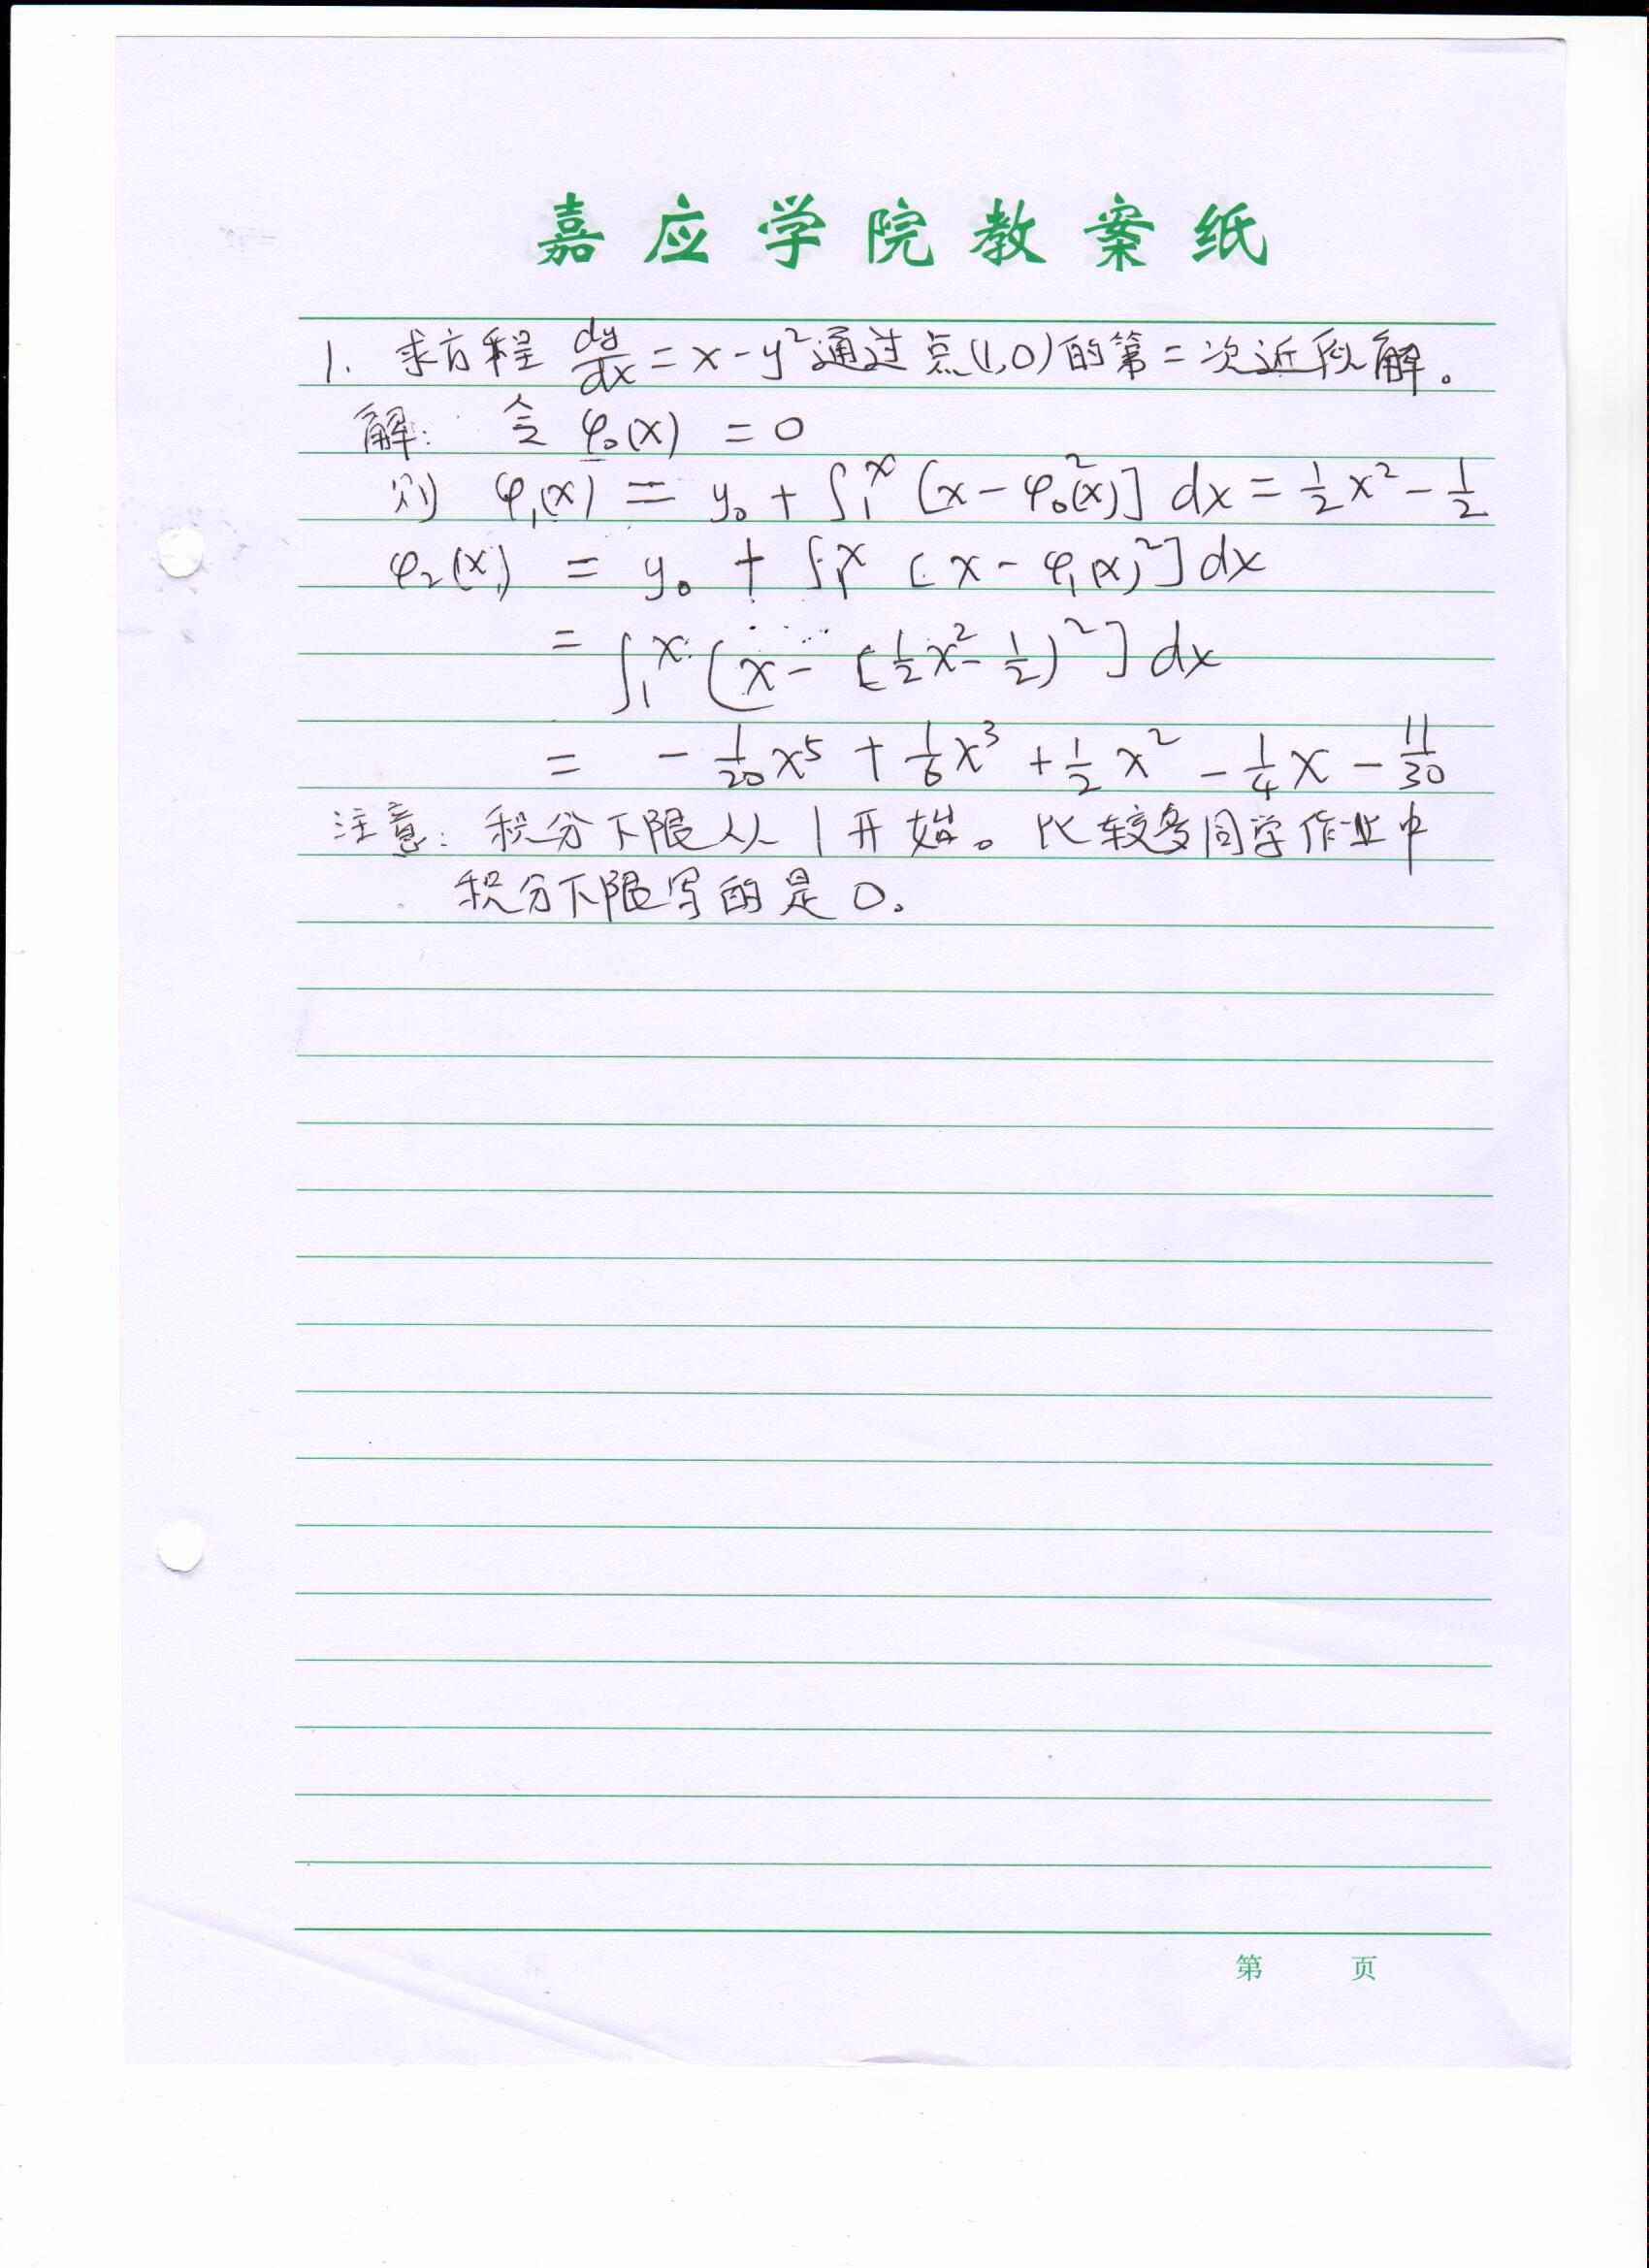 嘉应学院教案纸
1. 求方程 dy/dx = x - y² 通过点(1,0)的第二次近似解。
解: 令 φ₀(x) = 0
则 φ₁(x) = y₀ + ∫₁ˣ [x - φ₀²(x)] dx = 1/2 x² - 1/2
φ₂(x) = y₀ + ∫₁ˣ [x - φ₁(x)²] dx
= ∫₁ˣ [x - (1/2 x² - 1/2)²] dx
= - 1/20 x⁵ + 1/6 x³ + 1/2 x² - 1/4 x - 11/30
注意: 积分下限从1开始。比较多同学作业中
积分下限写的是0。
第 页